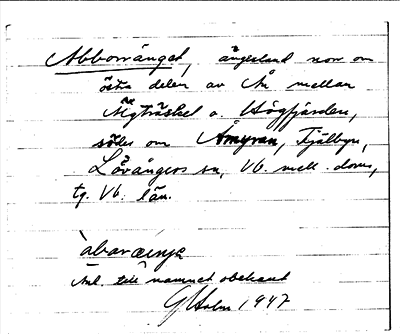 Abborränget, ängesland norr om
östra delen av Ån mellan
Älgträsket o. Högfjärden,
söder om Åmyran, Fjälbyn,
Lövångers sn, Vb. mell. doms,
tg. Vb. län.
abaräŋjə
Anl. till namnet obekant
G Holm 1947